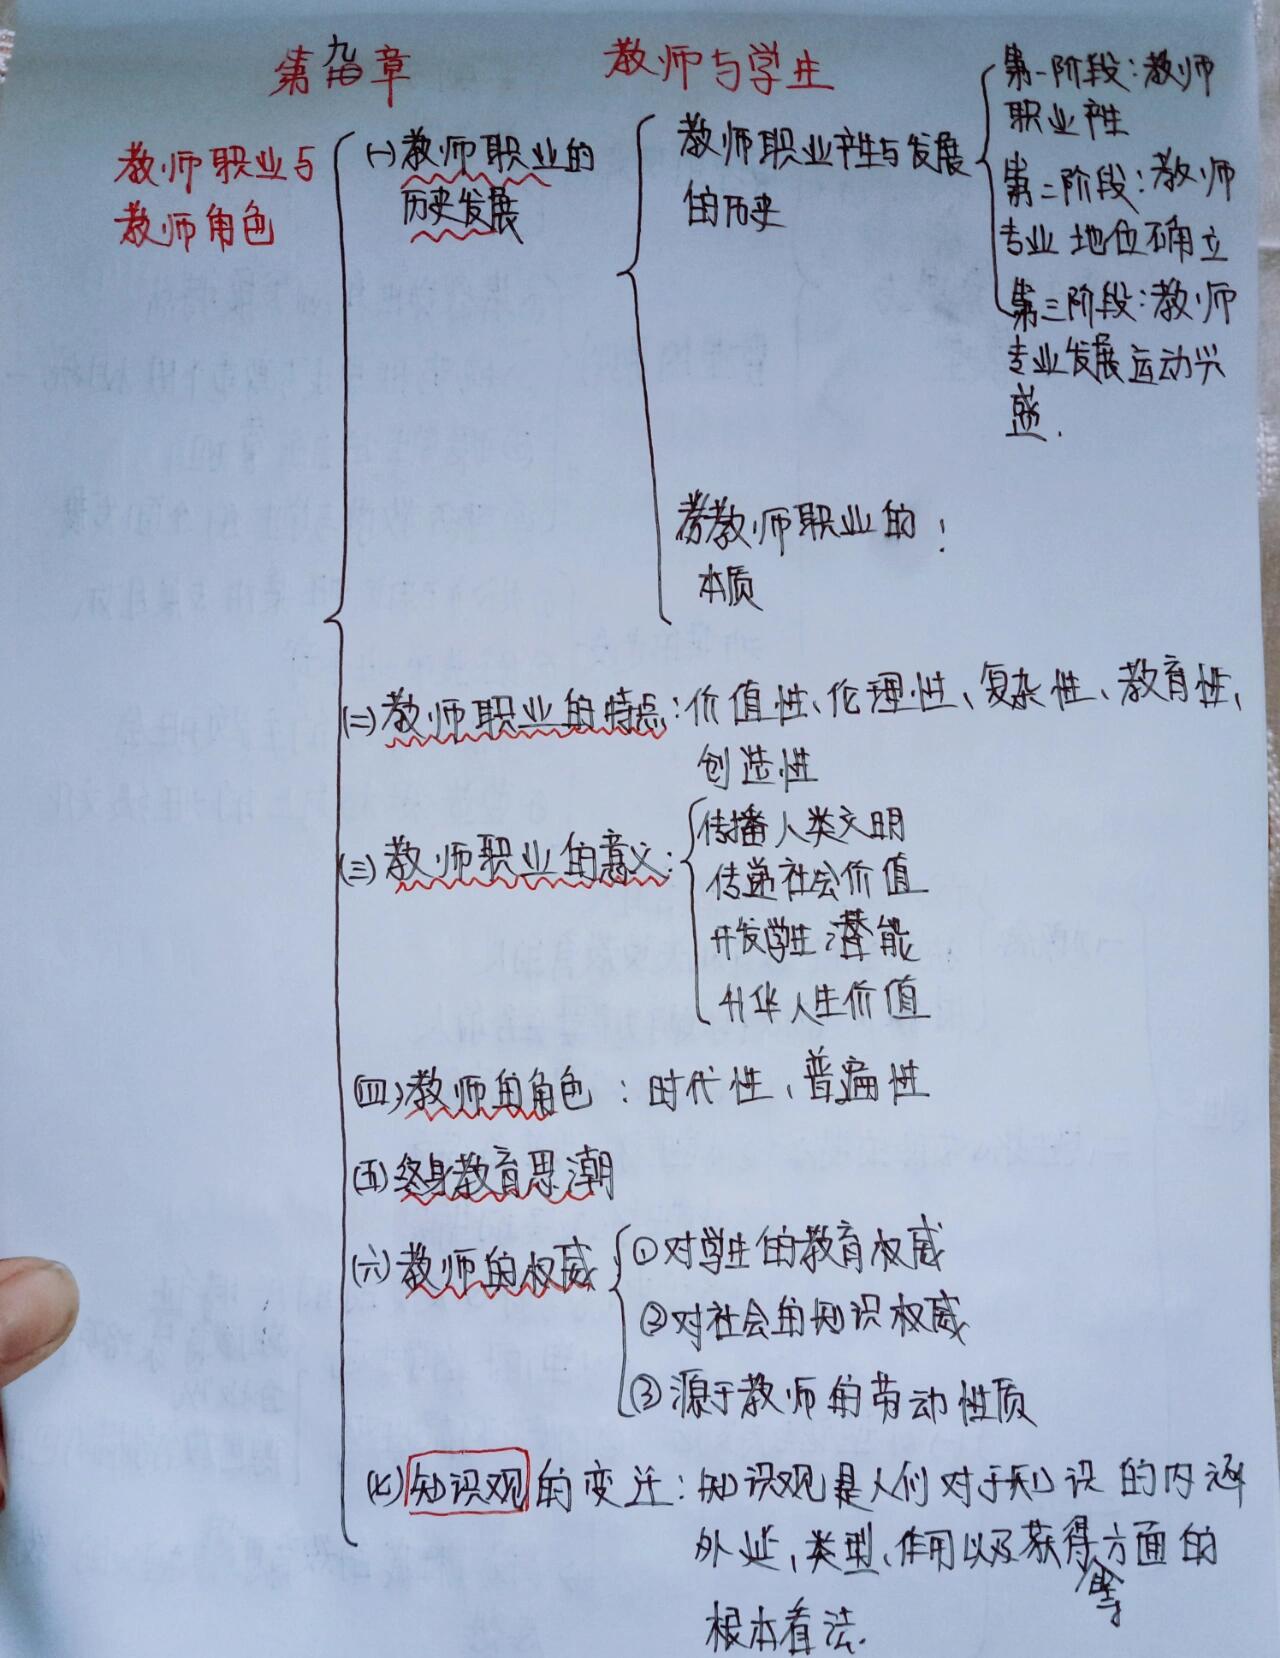 第九章 教师与学生
教师职业与
教师角色
(一)教师职业的
历史发展
教师职业产生与发展
的历史
第一阶段:教师
职业产生
第二阶段:教师
专业地位确立
第三阶段:教师
专业发展运动兴
盛.
教师职业的:
本质
(二)教师职业的特点:价值性、伦理性、复杂性、教育性、
创造性
(三)教师职业的意义:
传播人类文明
传递社会价值
开发学生潜能
升华人生价值
(四)教师的角色:时代性、普遍性
(五)终身教育思潮
(六)教师的权威
①对学生的教育权威
②对社会的知识权威
③源于教师的劳动性质
(七)知识观的变迁:知识观是人们对于知识的内涵
外延、类型、作用以及获得等方面的
根本看法.